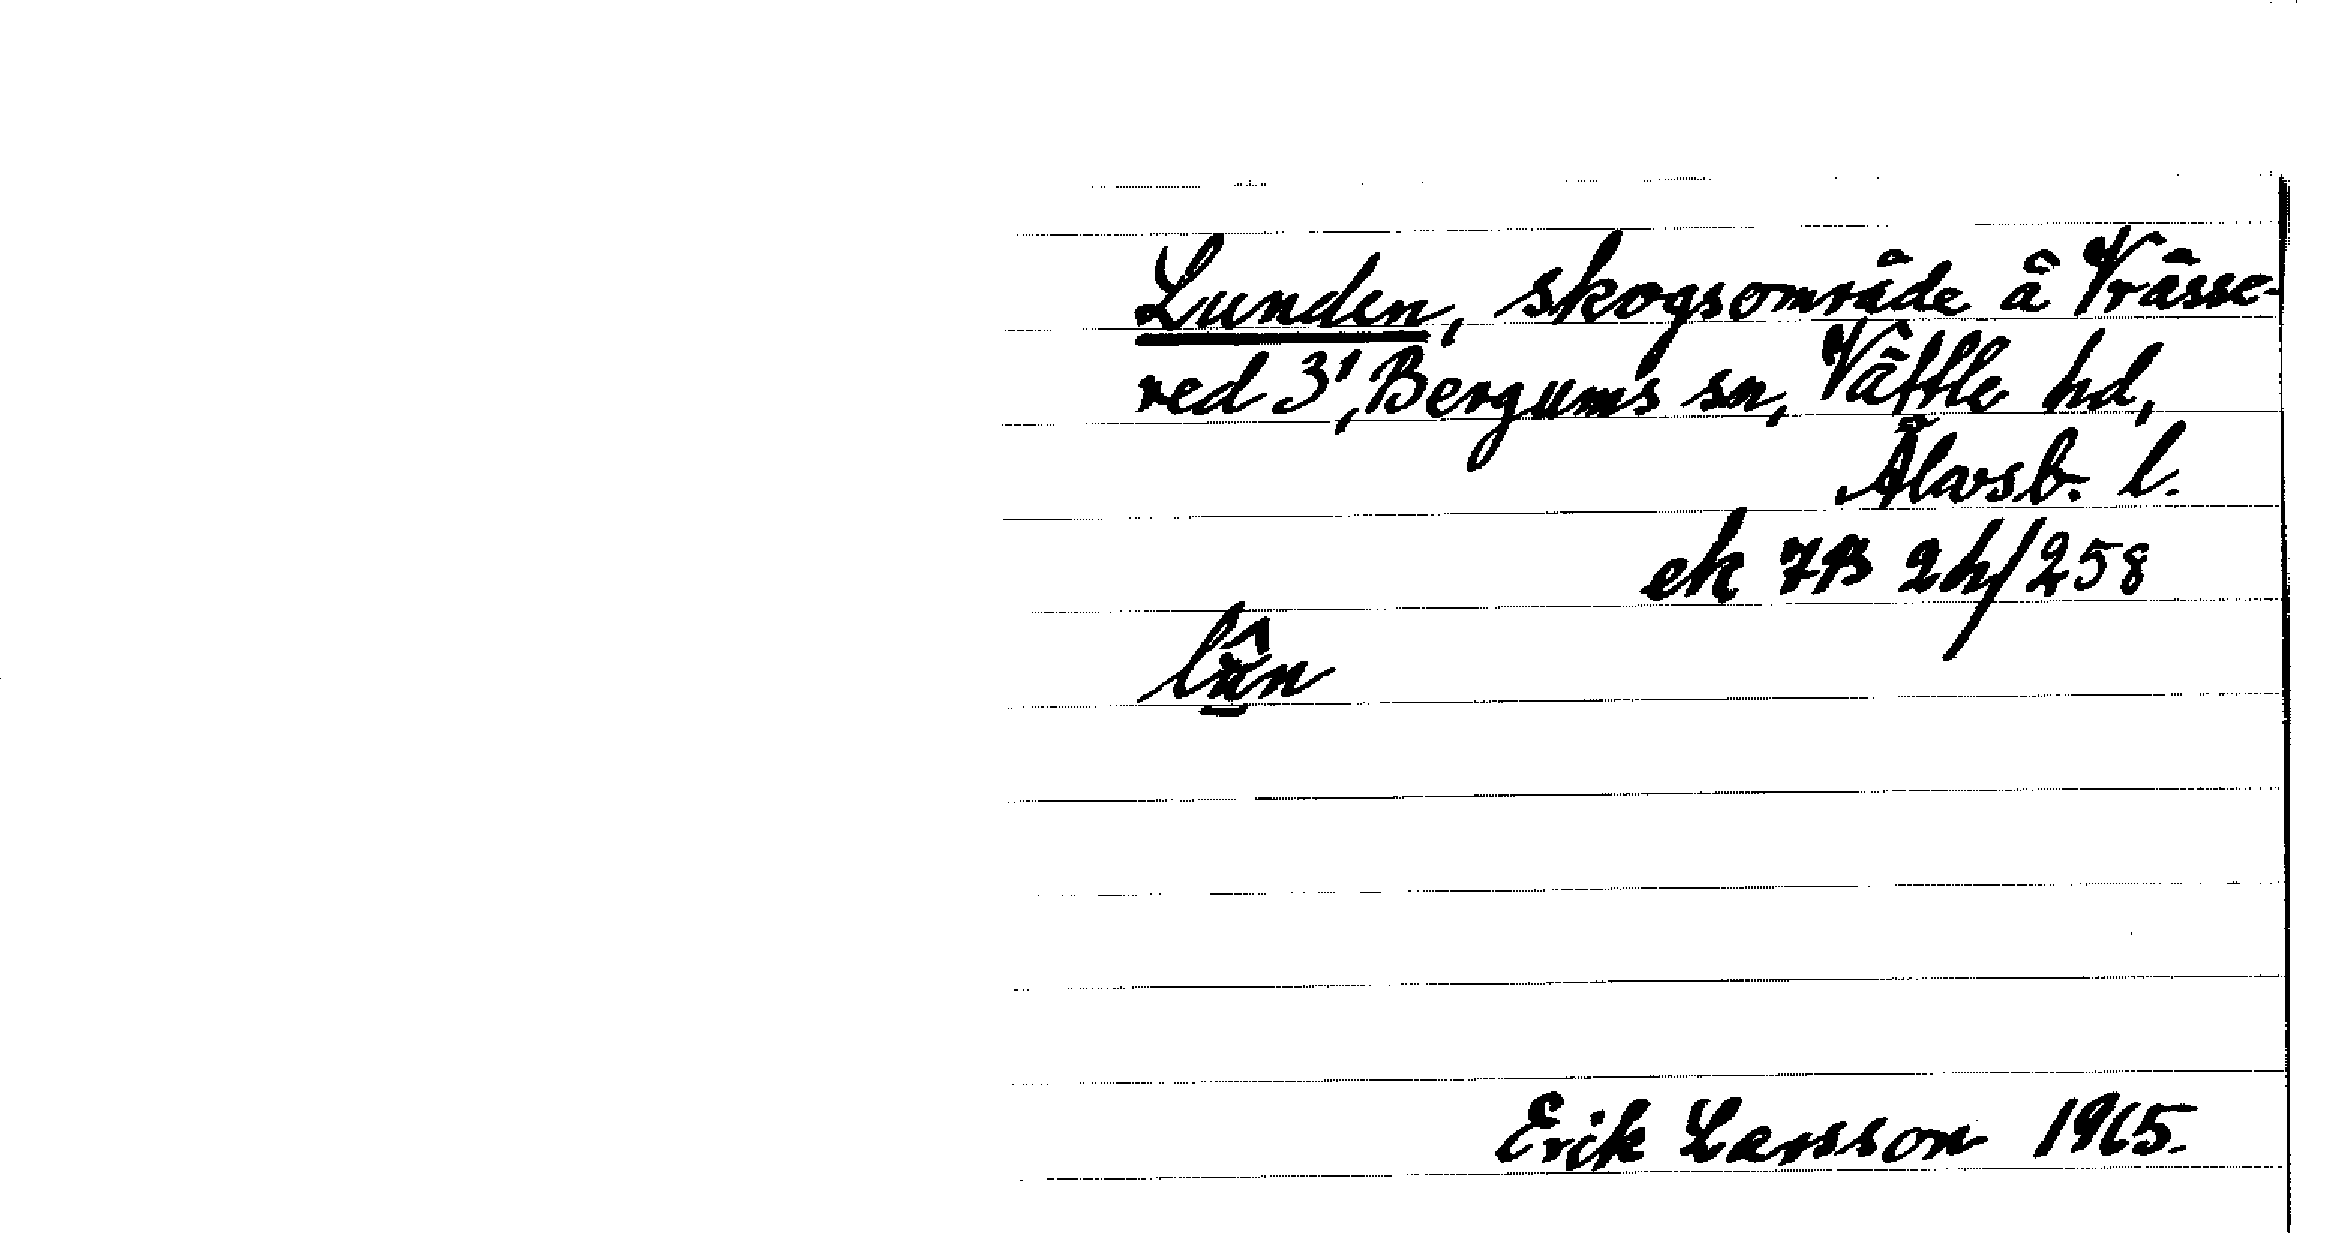 Lunden, skogsområde å Vrässe-
red 3¹, Bergums sn, Vättle hd,
Älvsb. l.
ek 7B 2h/258
Erik Larsson 1965.